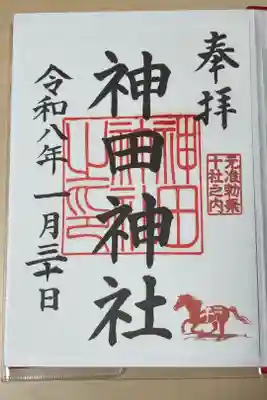 奉拝
元准勅祭
十社之内
神田神社
神田
神社
之印
令和八年一月三十日